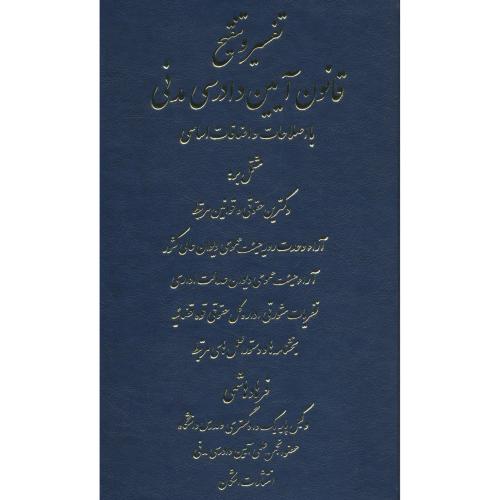 تفسیر و تنقیح
قانون آیین دادرسی مدنی
با اصلاحات و اضافات اساسی
مشتمل بر:
دکترین حقوقی و قوانین مرتبط
آراء وحدت رویه هیئت عمومی دیوان عالی کشور
آراء هیئت عمومی دیوان عدالت اداری
نظریات مشورتی اداره کل حقوقی قوه قضائیه
بخشنامه ها و دستورالعمل های مرتبط
فرهاد هاشمی
وکیل پایه یک دادگستری و مدرس دانشگاه
عضو انجمن علمی آیین دادرسی مدنی
انتشارات